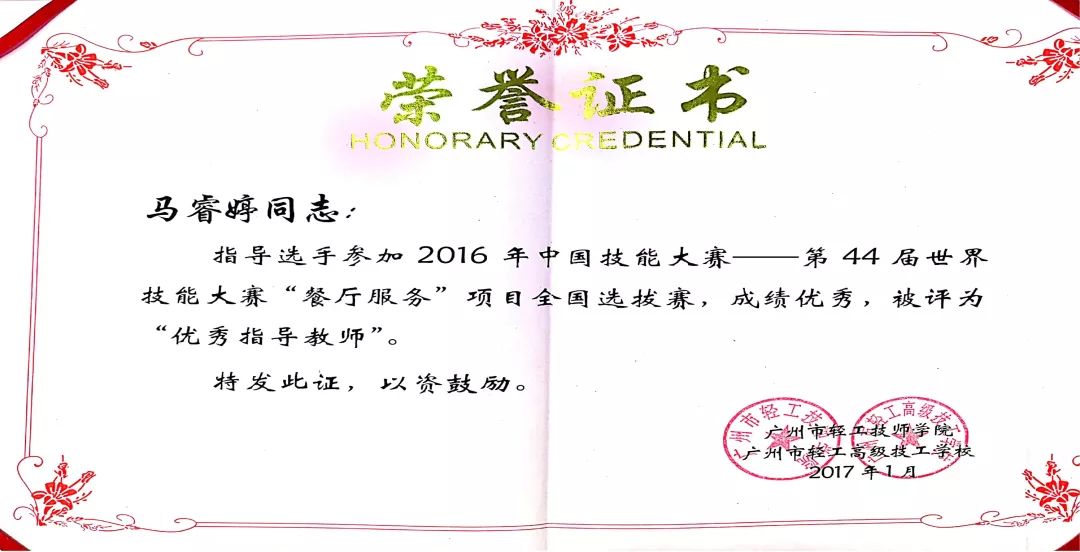 荣誉证书
HONORARY CREDENTIAL
马睿婷同志：
指导选手参加 2016 年中国技能大赛——第 44 届世界
技能大赛“餐厅服务”项目全国选拔赛，成绩优秀，被评为
“优秀指导教师”。
特发此证，以资鼓励。
广州市轻工技师学院
广州市轻工高级技工学校
2017 年 1 月